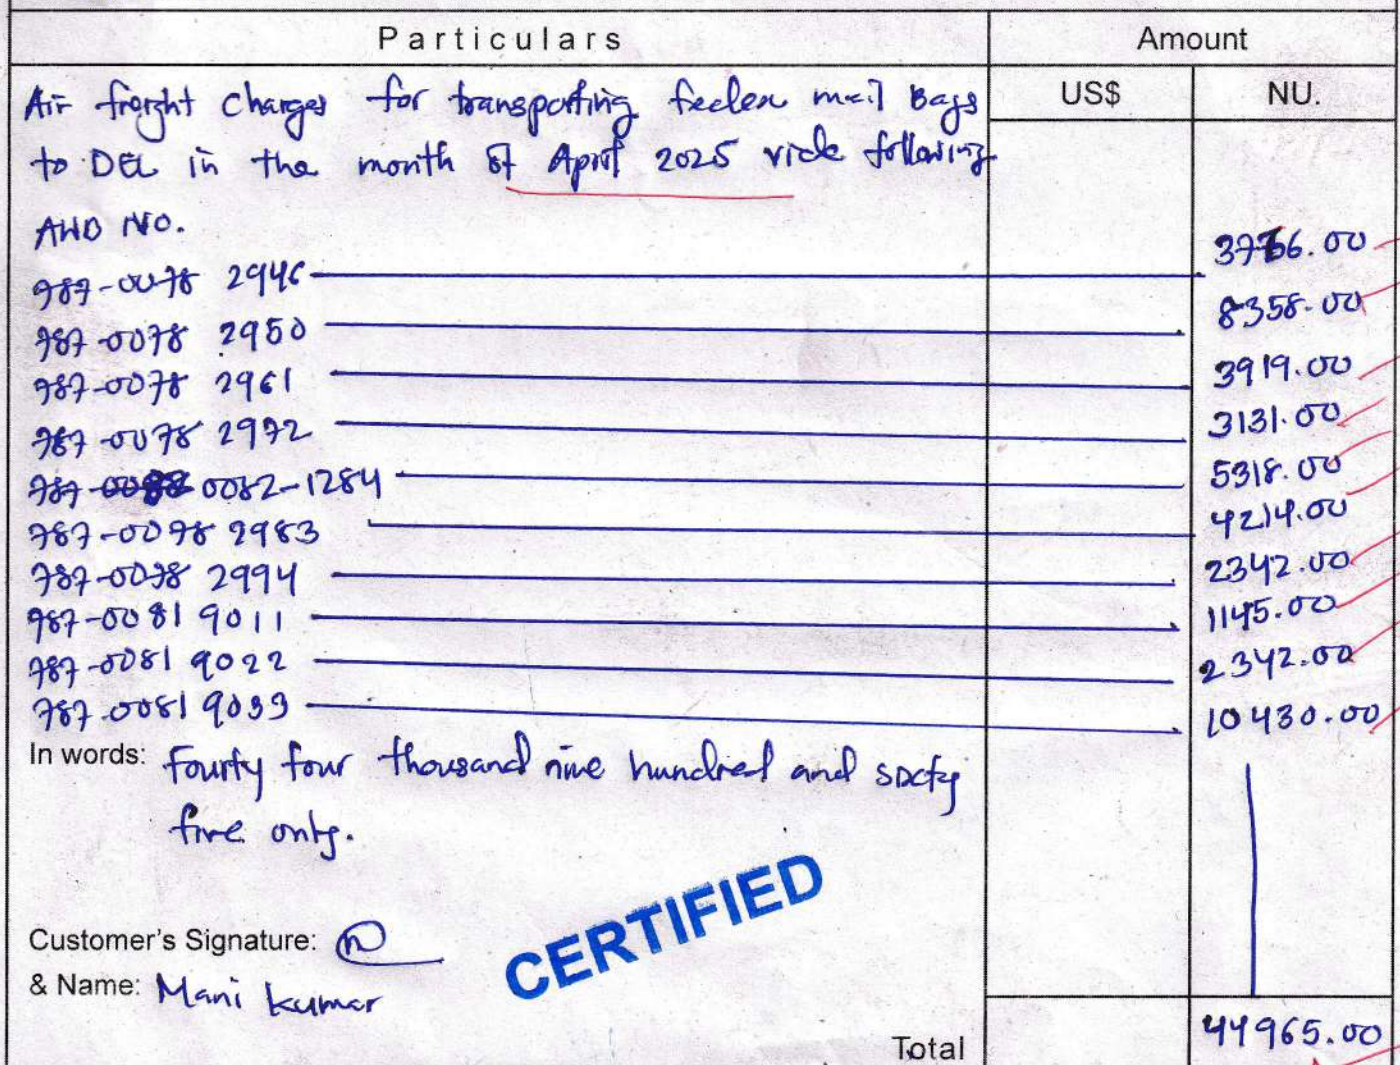 Particulars Amount
US$ NU.
Air freight charges for transporting feelex mail Bags
to DEL in the month of April 2025 vide following
AWB NO.
787-0078 2946 3766.00
787-0078 2950 8358.00
787-0078 2961 3919.00
787-0078 2972 3131.00
787- 0082-1284 5318.00
787-0078 2983 4214.00
787-0078 2994 2342.00
787-0081 9011 1145.00
787-0081 9022 2342.00
787-0081 9033 10430.00
In words: Fourty four thousand nine hundred and sixty
five only.
CERTIFIED
Customer's Signature:
& Name: Mani kumar
Total 44965.00